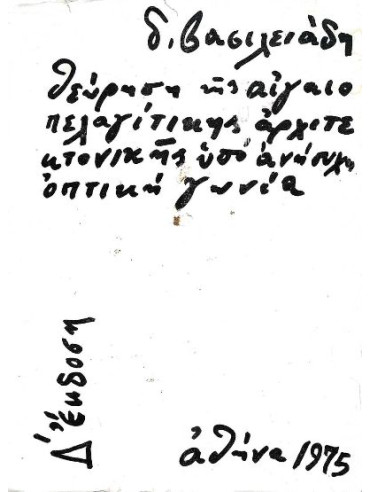 δ. βασιλειάδη
θεώρηση τῆς αἰγαιο
πελαγίτικης ἀρχιτε
κτονικῆς ὑπό ἀνήσυχη
ὀπτική γωνία
Δ´ ἔκδοση
ἀθήνα 1975